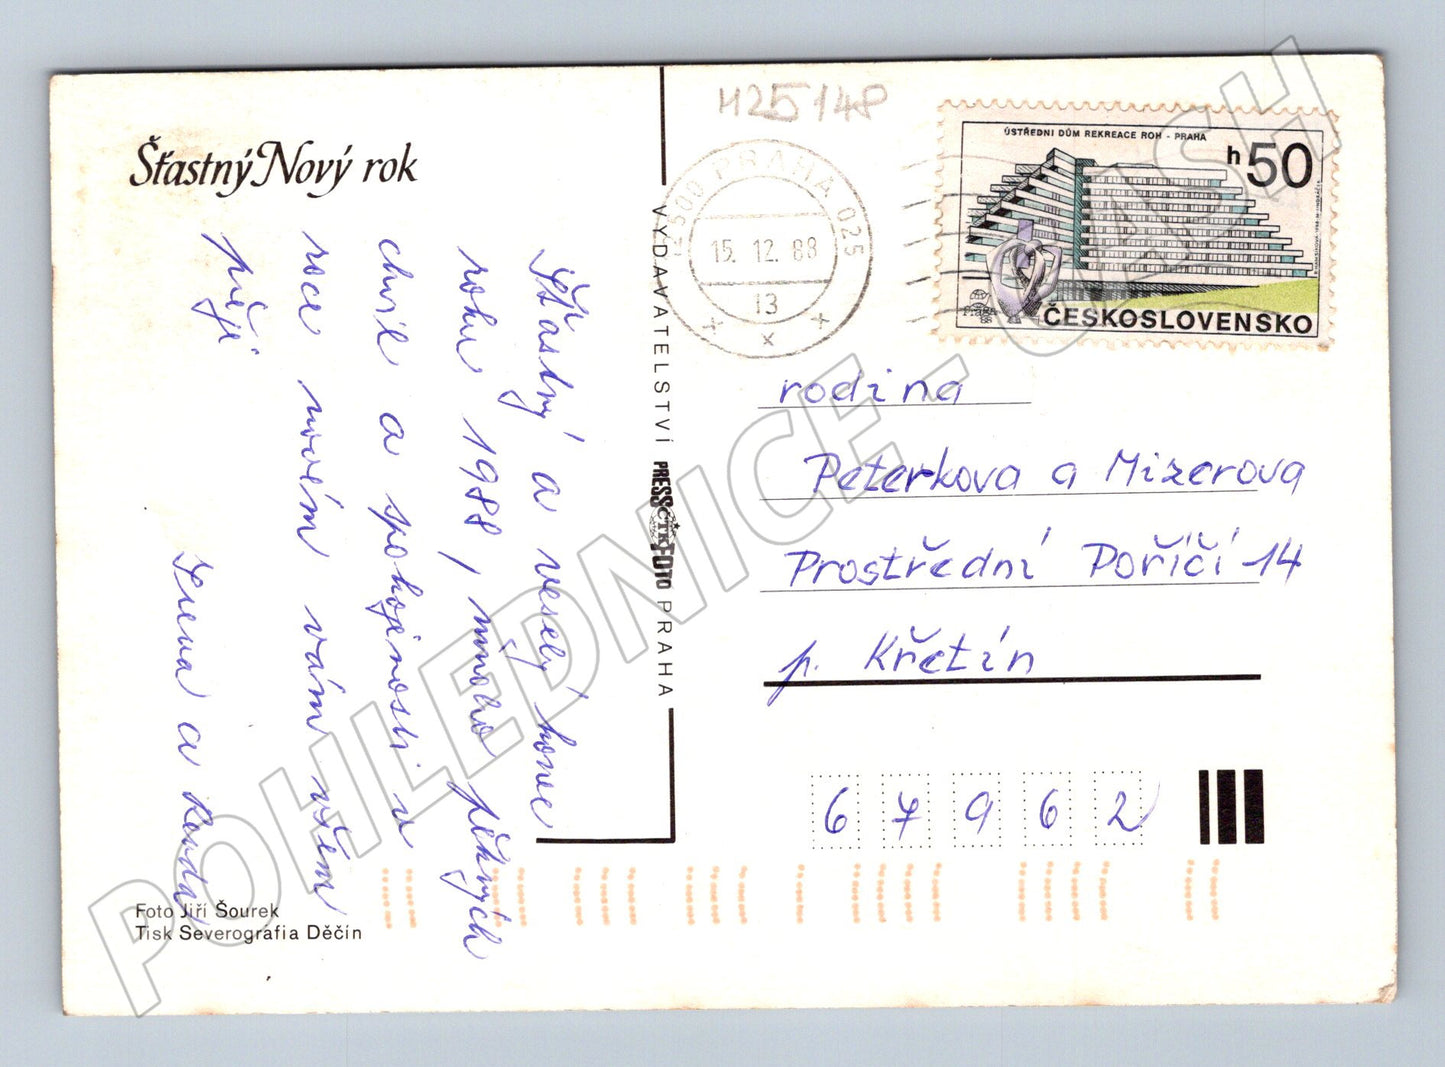 Šťastný Nový rok
Šťastný a veselý konec
roku 1988, mnoho pěkných
chvil a spokojenosti v
roce novém vám všem
přejí
a Renda
Foto Jiří Šourek
Tisk Severografia Děčín
VYDAVATELSTVÍ PRESSFOTO PRAHA
ČTK
M25148
12500 PRAHA 025
15. 12. 88
13
x
ÚSTŘEDNÍ DŮM REKREACE ROH - PRAHA
h50
PRAHA
88
ČESKOSLOVENSKO
rodina
Peterkova a Mizerova
Prostřední Poříčí 14
p. Křetín
6 7 9 6 2
POHLEDNICE - CASH